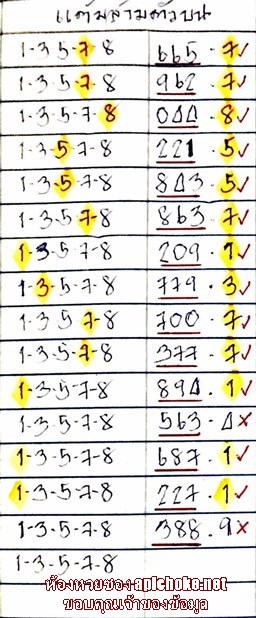 แต้มสามตัวบน
1-3-5-7-8 665 . 7✓
1-3-5-7-8 962 . 7✓
1-3-5-7-8 044 . 8✓
1-3-5-7-8 221 . 5✓
1-3-5-7-8 843 . 5✓
1-3-5-7-8 863 . 7✓
1-3-5-7-8 209 . 1✓
1-3-5-7-8 779 . 3✓
1-3-5-7-8 700 . 7✓
1-3-5-7-8 377 . 7✓
1-3-5-7-8 894 . 1✓
1-3-5-7-8 563 . 4✗
1-3-5-7-8 687 . 1✓
1-3-5-7-8 227 . 1✓
1-3-5-7-8 388 . 9✗
1-3-5-7-8
ห้องหวยของ aplchoke.net
ขอบคุณเจ้าของข้อมูล